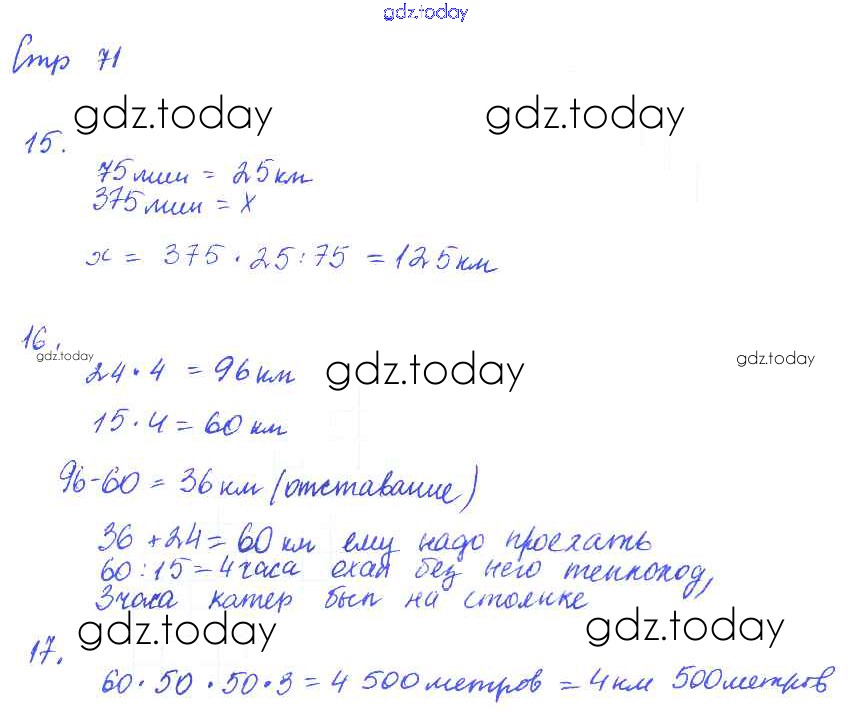 gdz.today
Стр 71
gdz.today gdz.today
15.
75мин = 25км
375мин = х
х = 375·25:75 = 125км
16.
gdz.today gdz.today gdz.today
24·4 = 96км
15·4 = 60км
96-60 = 36км (отставание)
36+24=60км ему надо проехать
60:15=4часа ехал без него теплоход,
3часа катер был на стоянке
gdz.today gdz.today
17.
60·50·50·3 = 4 500метров = 4км 500метров